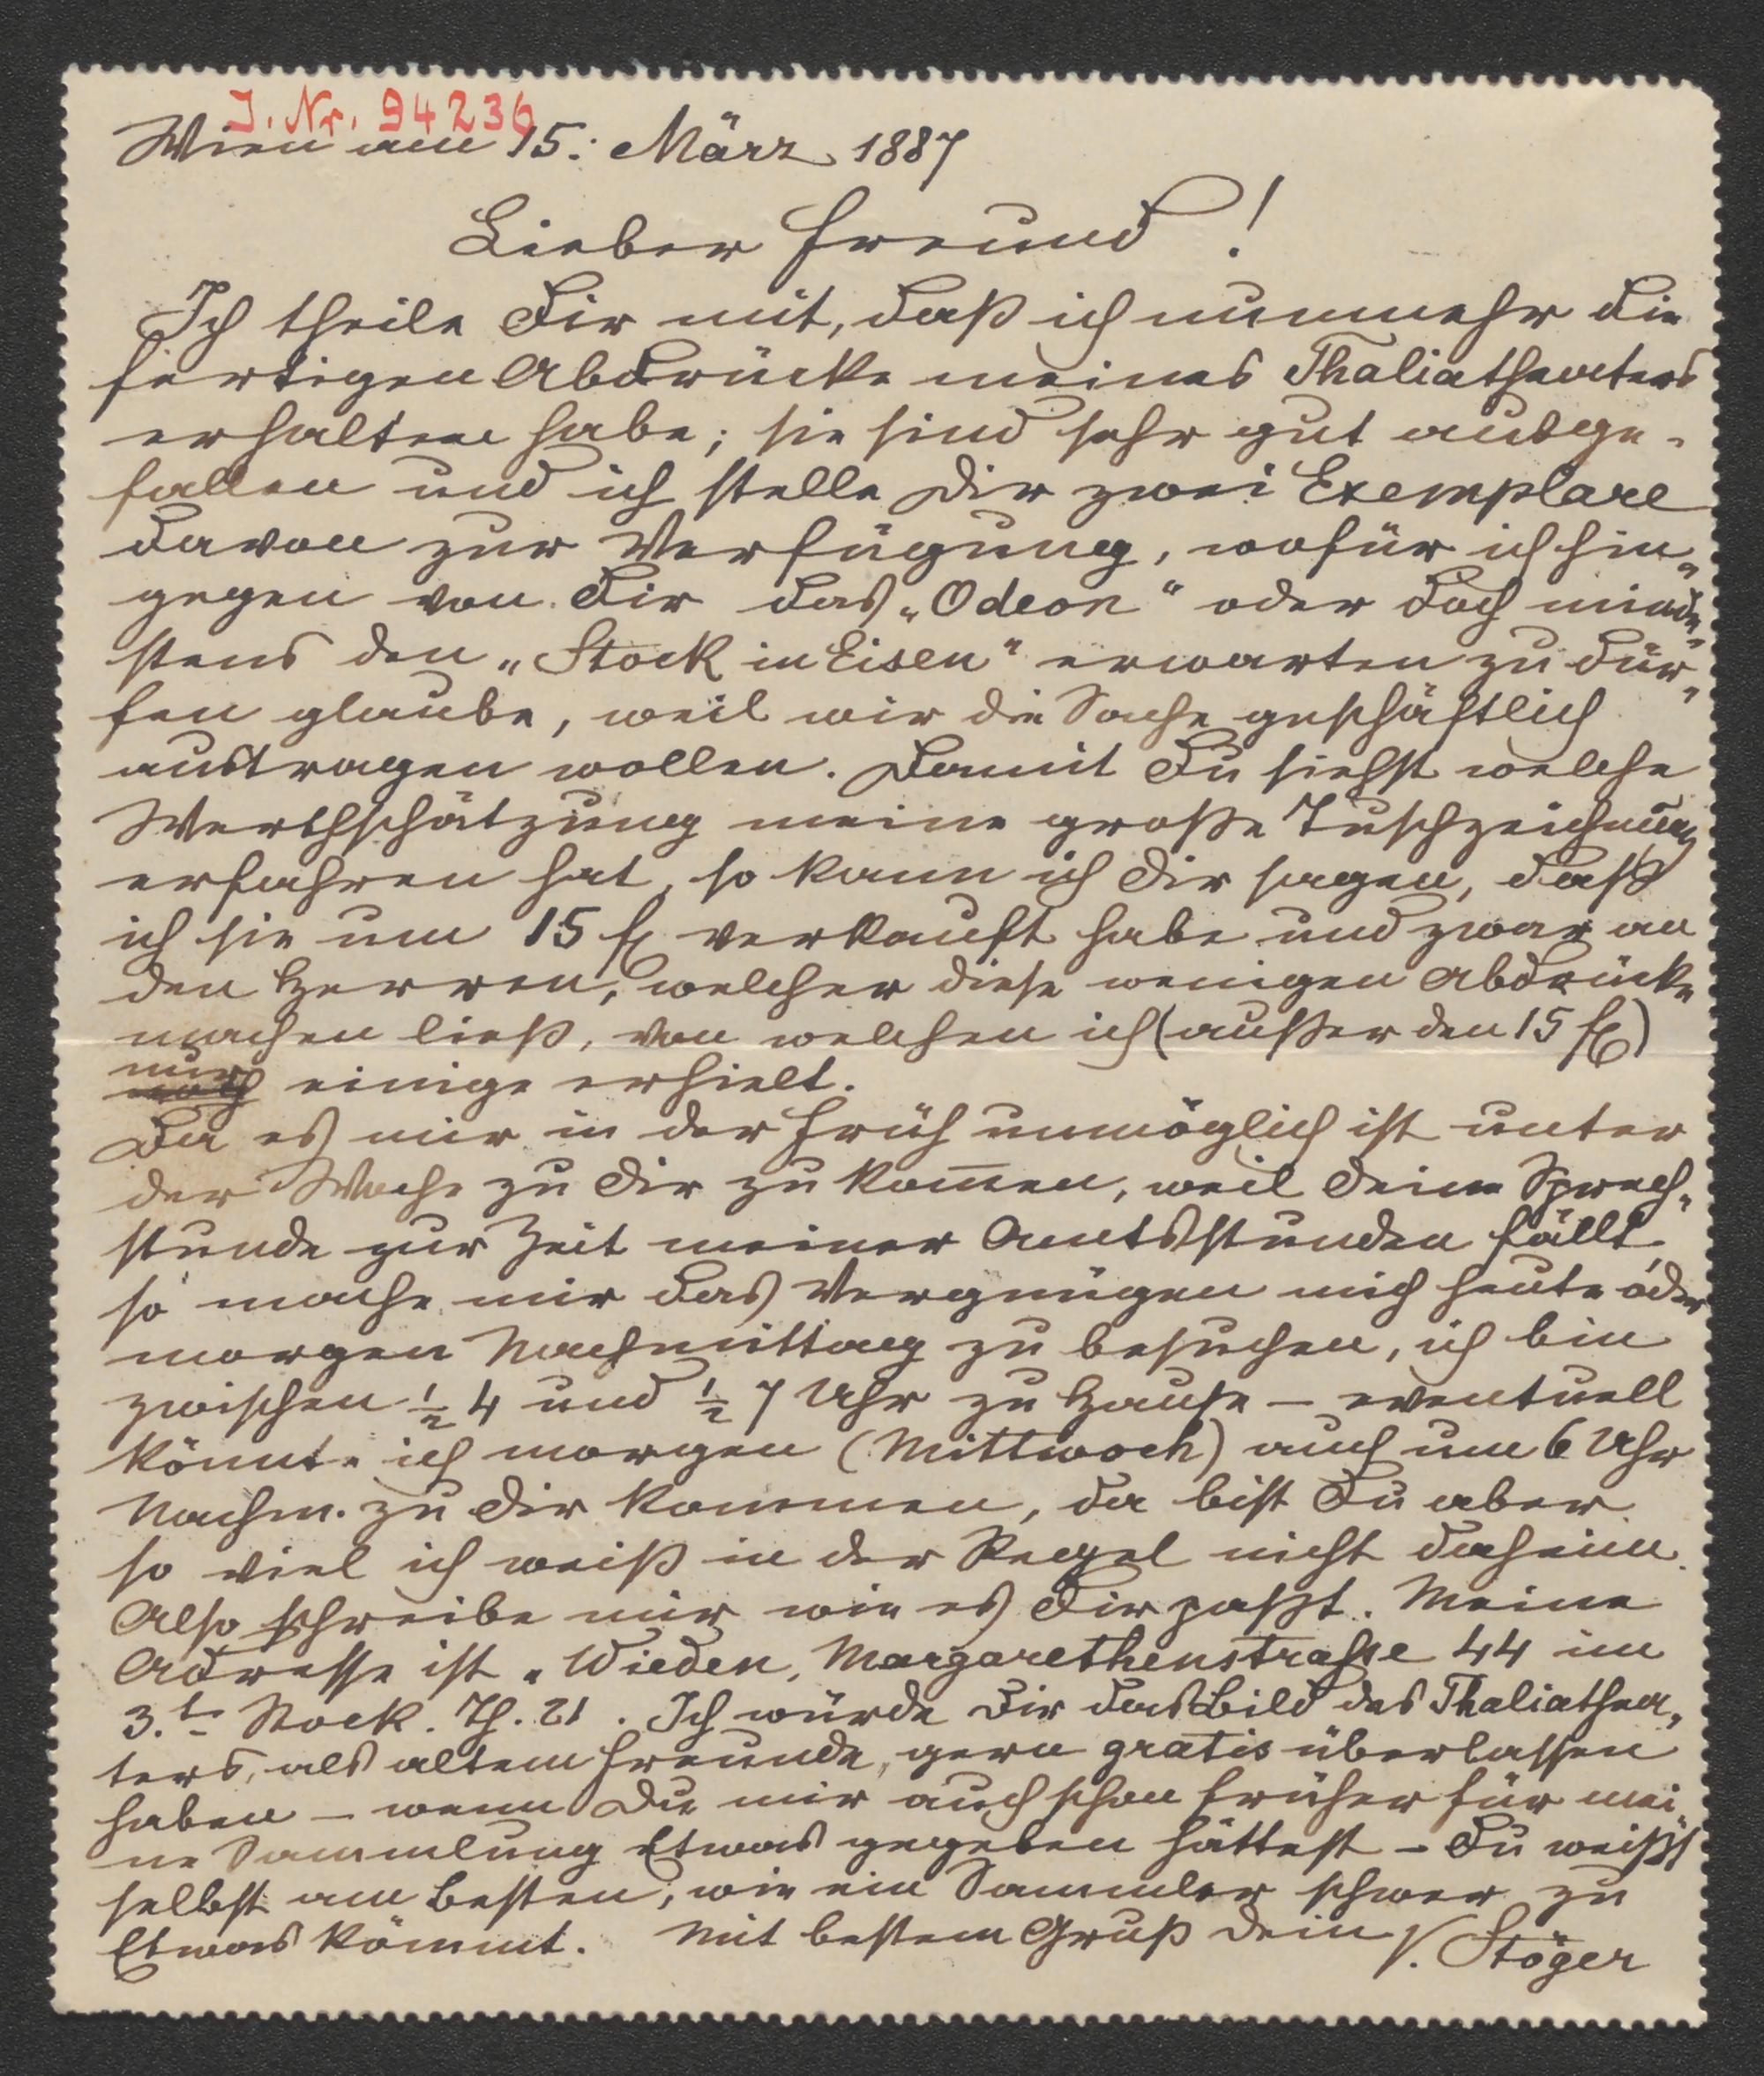 J. Nr. 94236
Wien am 15. März 1887
Lieber Freund!
Ich theile Dir mit, daß ich nunmehr die
fertigen Abdrücke meines Thaliatheaters
erhalten habe; sie sind sehr gut ausge-
fallen und ich stelle Dir zwei Exemplare
davon zur Verfügung, wofür ich hin-
gegen von Dir das „Odeon“ oder doch minde-
stens den „Stock im Eisen“ erwarten zu dür-
fen glaube, weil wir die Sache geschäftlich
austragen wollen. Damit Du siehst welche
Werthschätzung meine große Tuschzeichnung
erfahren hat, so kann ich Dir sagen, daß
ich sie um 15 fl verkauft habe und zwar an
den Herren, welcher diese wenigen Abdrücke
machen ließ, von welchen ich (außer den 15 fl)
nur
noch einige erhielt.
Da es mir in der Früh unmöglich ist unter
der Woche zu Dir zu kom̅en, weil Deine Sprech-
stunde zur Zeit meiner Amtsstunden fällt
so mache mir das Vergnügen mich heute oder
morgen Nachmittag zu besuchen, ich bin
zwischen ½ 4 und ½ 7 Uhr zu Hause – eventuell
könnte ich morgen (Mittwoch) auch um 6 Uhr
Nachm. zu Dir kommen, da bist Du aber
so viel ich weiß in der Regel nicht daheim.
Also schreibe mir wie es Dir paßt. Meine
Adresse ist „Wieden, Margarethenstraße 44 im
3.t. Stock. Th. 21. Ich würde Dir das Bild des Thaliathea-
ters, als altem Freunde, gern gratis überlassen
haben – wenn Du mir auch schon früher für mei-
ne Sammlung Etwas gegeben hättest – Du weißt
selbst am Besten, wie ein Sammler schwer zu
Etwas kömmt. Mit bestem Gruß Dein V. Stöger